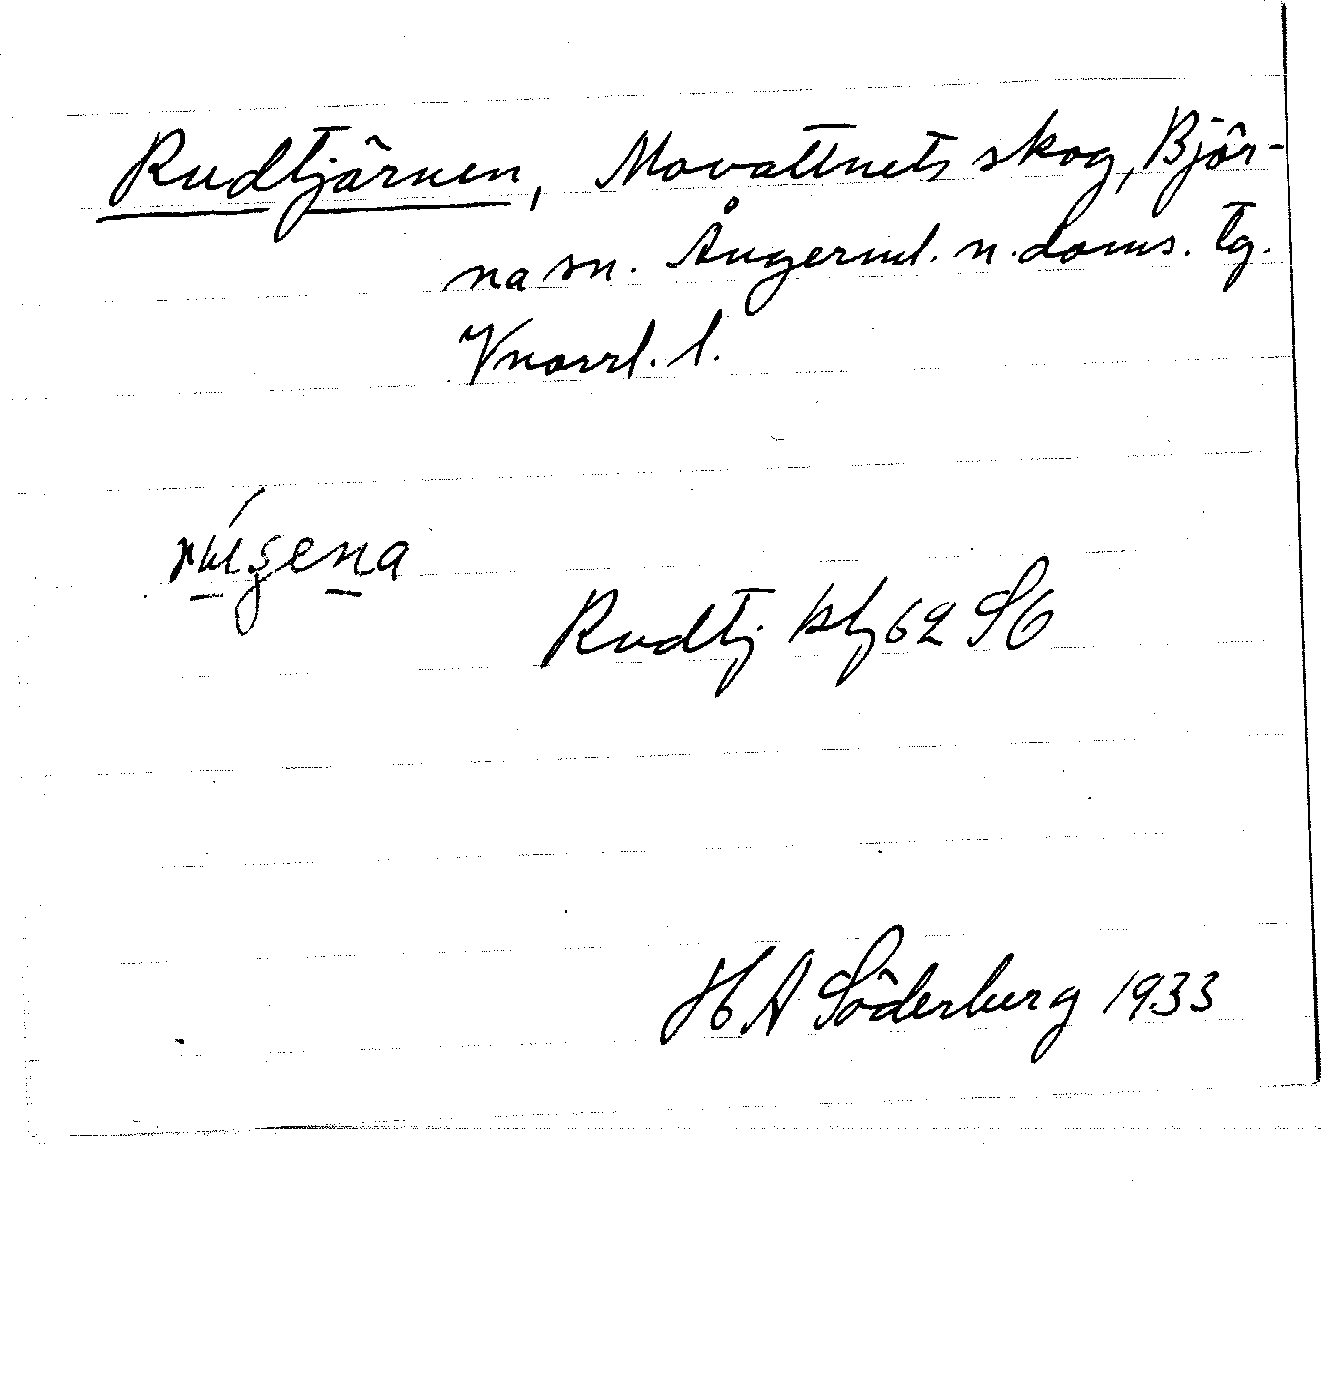 Rudtjärnen, Movattnets skog, Björ-
na sn. Ångerml. n. doms. tg.
Vnorrl. l.
Rudtj kbl 62 SO
H A Söderberg 1933